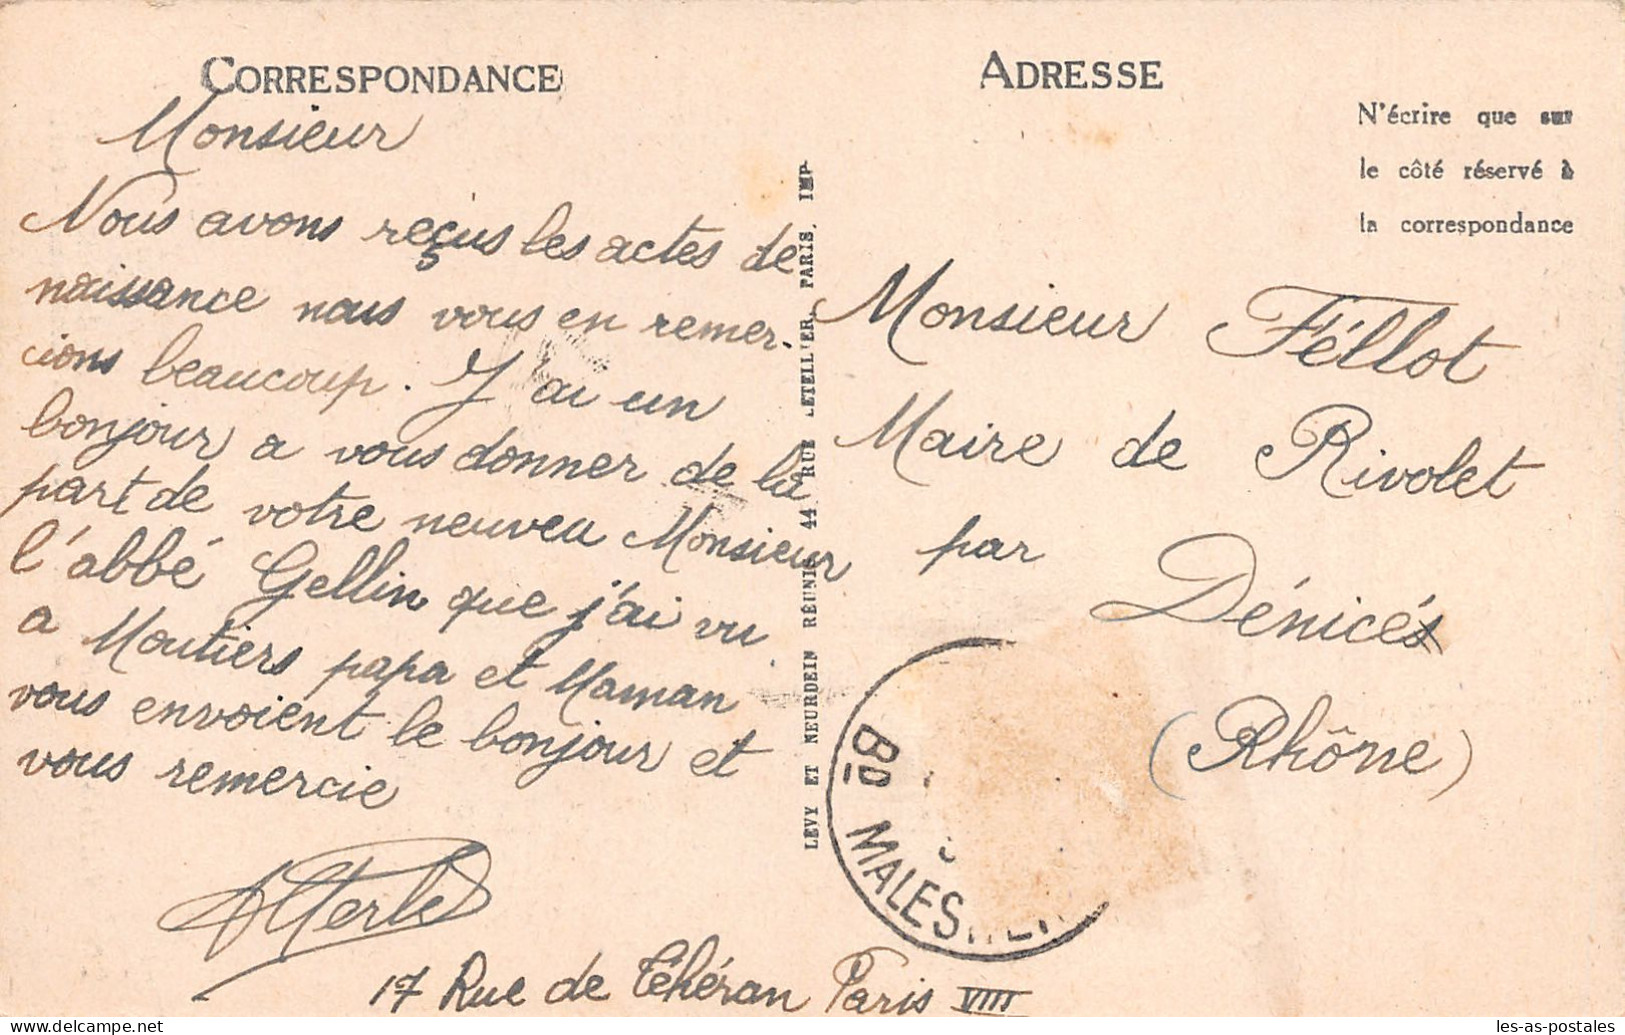 CORRESPONDANCE
Monsieur
Nous avons reçus les actes de
naissance nous vous en remer-
cions beaucoup. J'ai un
bonjour a vous donner de la
part de votre neuveu Monsieur
l'abbé Gellin que j'ai vu
a Moutiers papa et Maman
vous envoient le bonjour et
vous remercie
17 Rue de Téhéran Paris VIII
LEVY ET NEURDEIN RÉUNIS, 44 RUE LETELLIER, PARIS, IMP
ADRESSE
N'écrire que sur
le côté réservé à
la correspondance
Monsieur Féllot
Maire de Rivolet
par
Dénicés
(Rhône)
BD MALES
les-as-postales